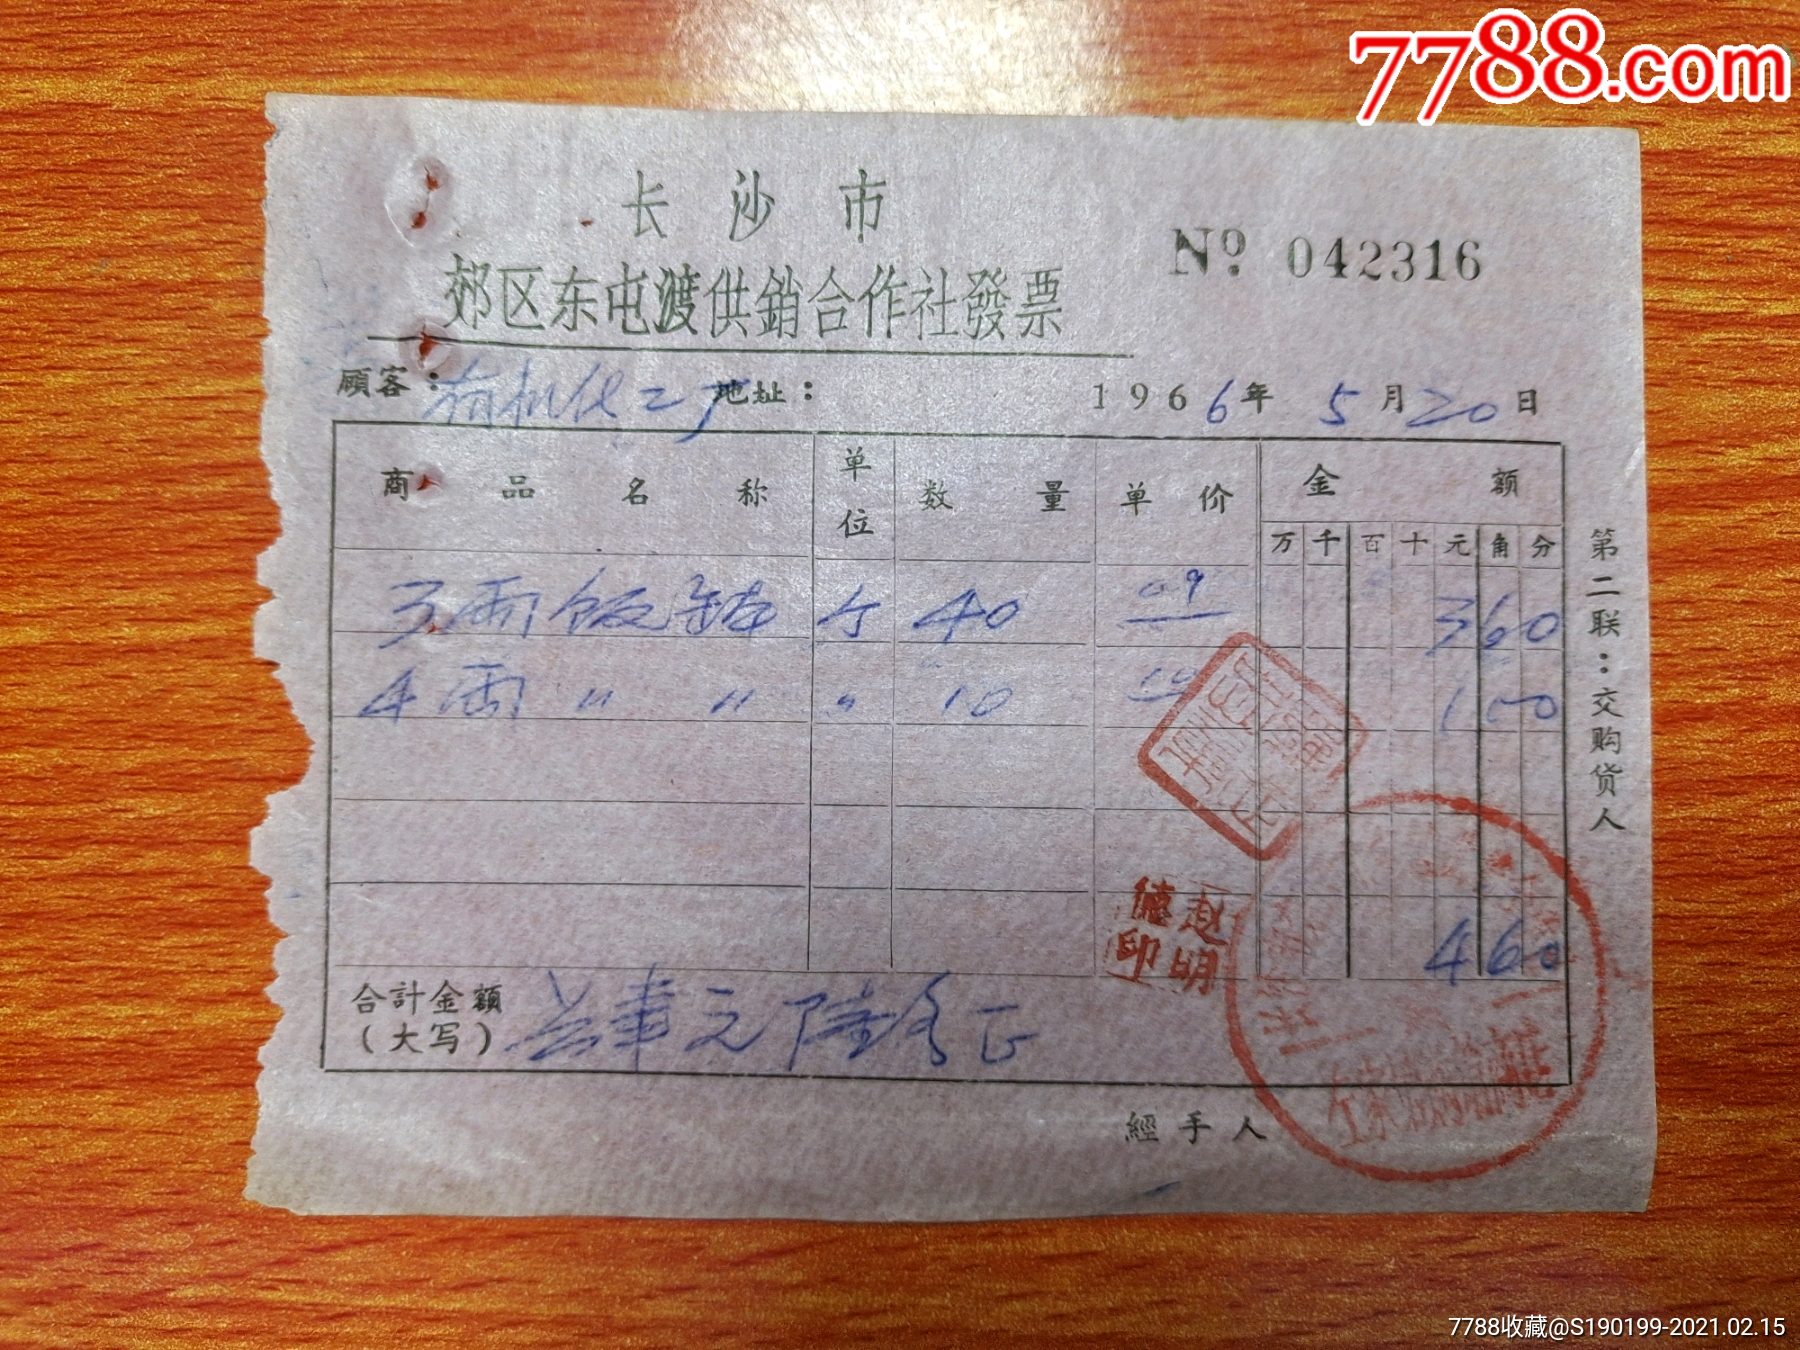 7788.com
长沙市
郊区东屯渡供銷合作社發票
№ 042316
顾客：有机化工厂 地址： 1966年5月20日
商品名称 单位 数量 单价 金额
万 千 百 十 元 角 分
3两饭钵 个 40 09 360
4两 〃 〃 〃 10 10 100
460
赵明德印
合計金額（大写） 肆元陆角正
經手人
第二联：交购货人
7788收藏@S190199-2021.02.15